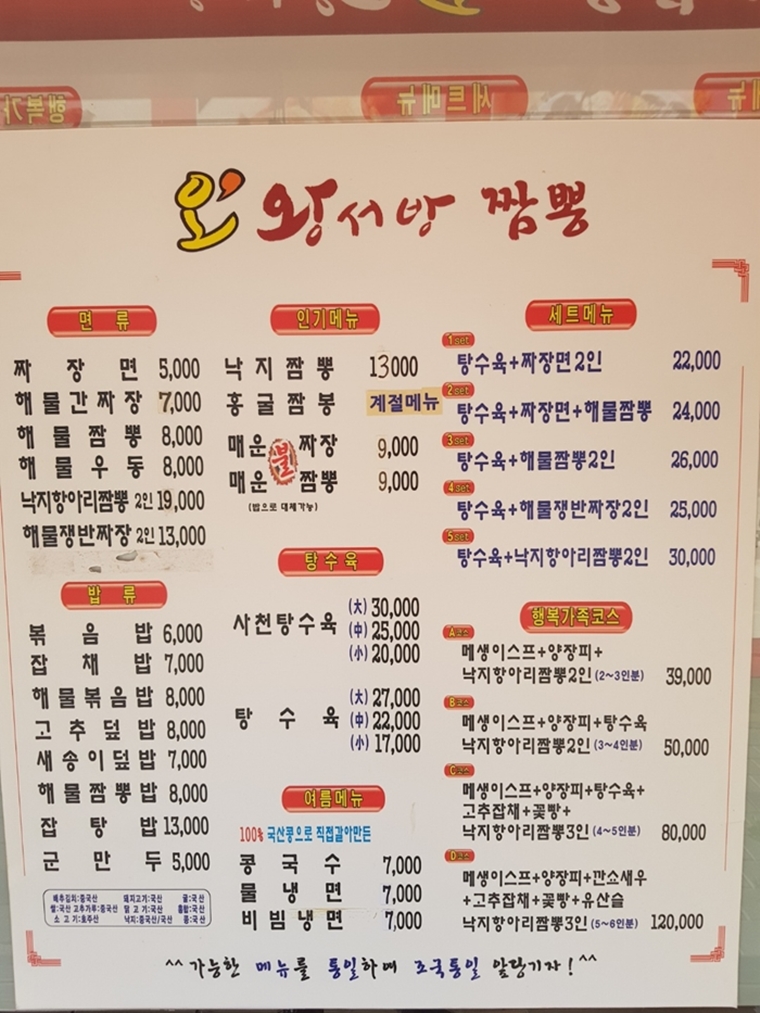 오 왕서방 짬뽕
면 류
짜 장 면 5,000
해물간짜장 7,000
해물짬뽕 8,000
해물우동 8,000
낙지항아리짬뽕 2인 19,000
해물쟁반짜장 2인 13,000
밥 류
볶 음 밥 6,000
잡 채 밥 7,000
해물볶음밥 8,000
고추덮밥 8,000
새송이덮밥 7,000
해물짬뽕밥 8,000
잡 탕 밥 13,000
군 만 두 5,000
배추김치:중국산 돼지고기:국산 굴:국산
쌀:국산 고추가루:중국산 닭고기:국산 홍합:국산
소고기:호주산 낙지:중국산/국산 콩:국산
인기메뉴
낙지짬뽕 13000
홍굴짬봉 계절메뉴
매운 불 짜장 9,000
매운 짬뽕 9,000
(밥으로 대체가능)
탕수육
사천탕수육 (大) 30,000
(中) 25,000
(小) 20,000
탕 수 육 (大) 27,000
(中) 22,000
(小) 17,000
여름메뉴
100% 국산콩으로 직접갈아만든
콩국수 7,000
물냉면 7,000
비빔냉면 7,000
세트메뉴
1set
탕수육+짜장면2인 22,000
2set
탕수육+짜장면+해물짬뽕 24,000
3set
탕수육+해물짬뽕2인 26,000
4set
탕수육+해물쟁반짜장2인 25,000
5set
탕수육+낙지항아리짬뽕2인 30,000
행복가족코스
A코스
메생이스프+양장피+
낙지항아리짬뽕2인 (2~3인분) 39,000
B코스
메생이스프+양장피+탕수육
낙지항아리짬뽕2인 (3~4인분) 50,000
C코스
메생이스프+양장피+탕수육+
고추잡채+꽃빵+
낙지항아리짬뽕3인 (4~5인분) 80,000
D코스
메생이스프+양장피+깐쇼새우
+고추잡채+꽃빵+유산슬
낙지항아리짬뽕3인 (5~6인분) 120,000
^^가능한 메뉴를 통일하며 조국통일 앞당기자!^^